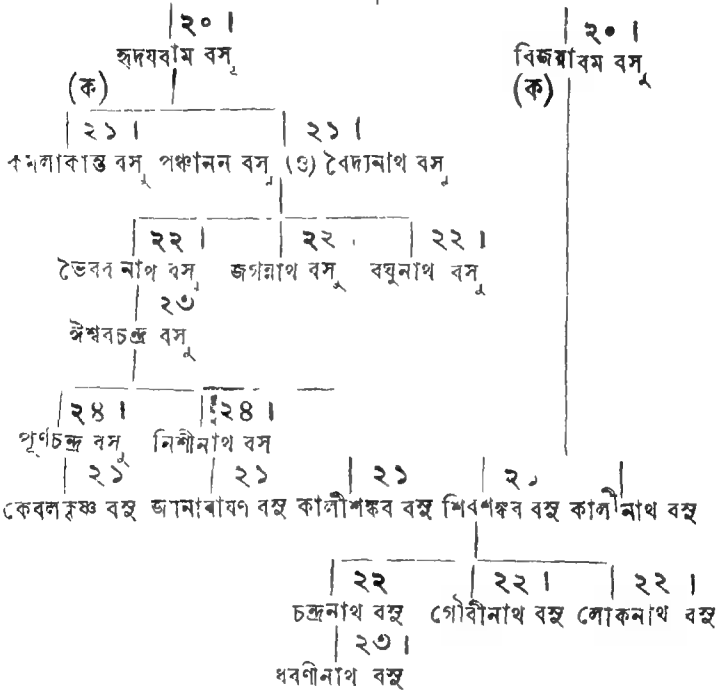 ২০। ২০।
হৃদযবাম বসু বিজয়াবম বসু
(ক) (ক)
২১। ২১।
কমলাকান্ত বসু পঞ্চানন বসু (ও) বৈদ্যনাথ বসু
২২। ২২ ২২।
ভৈবব নাথ বসু জগন্নাথ বসু বঘুনাথ বসু
২৩
ঈশ্ববচন্দ্র বসু
২৪। ২৪।
পূর্ণচন্দ্র বসু নিশীনাথ বস
২১ ২১ ২১
কেবলকৃষ্ণ বসু জানাবাযণ বসু কালীশঙ্কব বসু শিবশঙ্কব বসু কালীনাথ বসু
২২ ২২। ২২।
চন্দ্রনাথ বসু গৌবীনাথ বসু লোকনাথ বসু
২৩।
ধবণীনাথ বসু